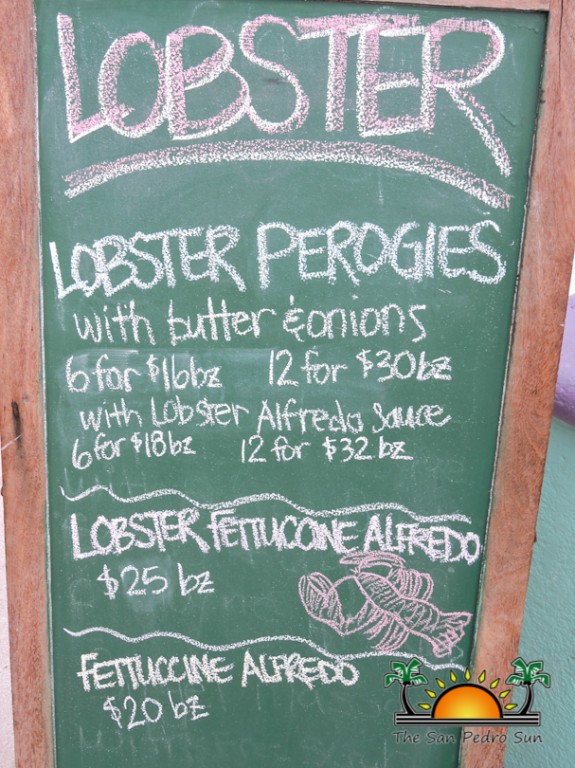 LOBSTER
LOBSTER PEROGIES
with butter & onions
6 for $16bz 12 for $30bz
with Lobster Alfredo Sauce
6 for $18bz 12 for $32bz
LOBSTER FETTUCCINE ALFREDO
$25 bz
FETTUCCINE ALFREDO
$20 bz
The San Pedro Sun